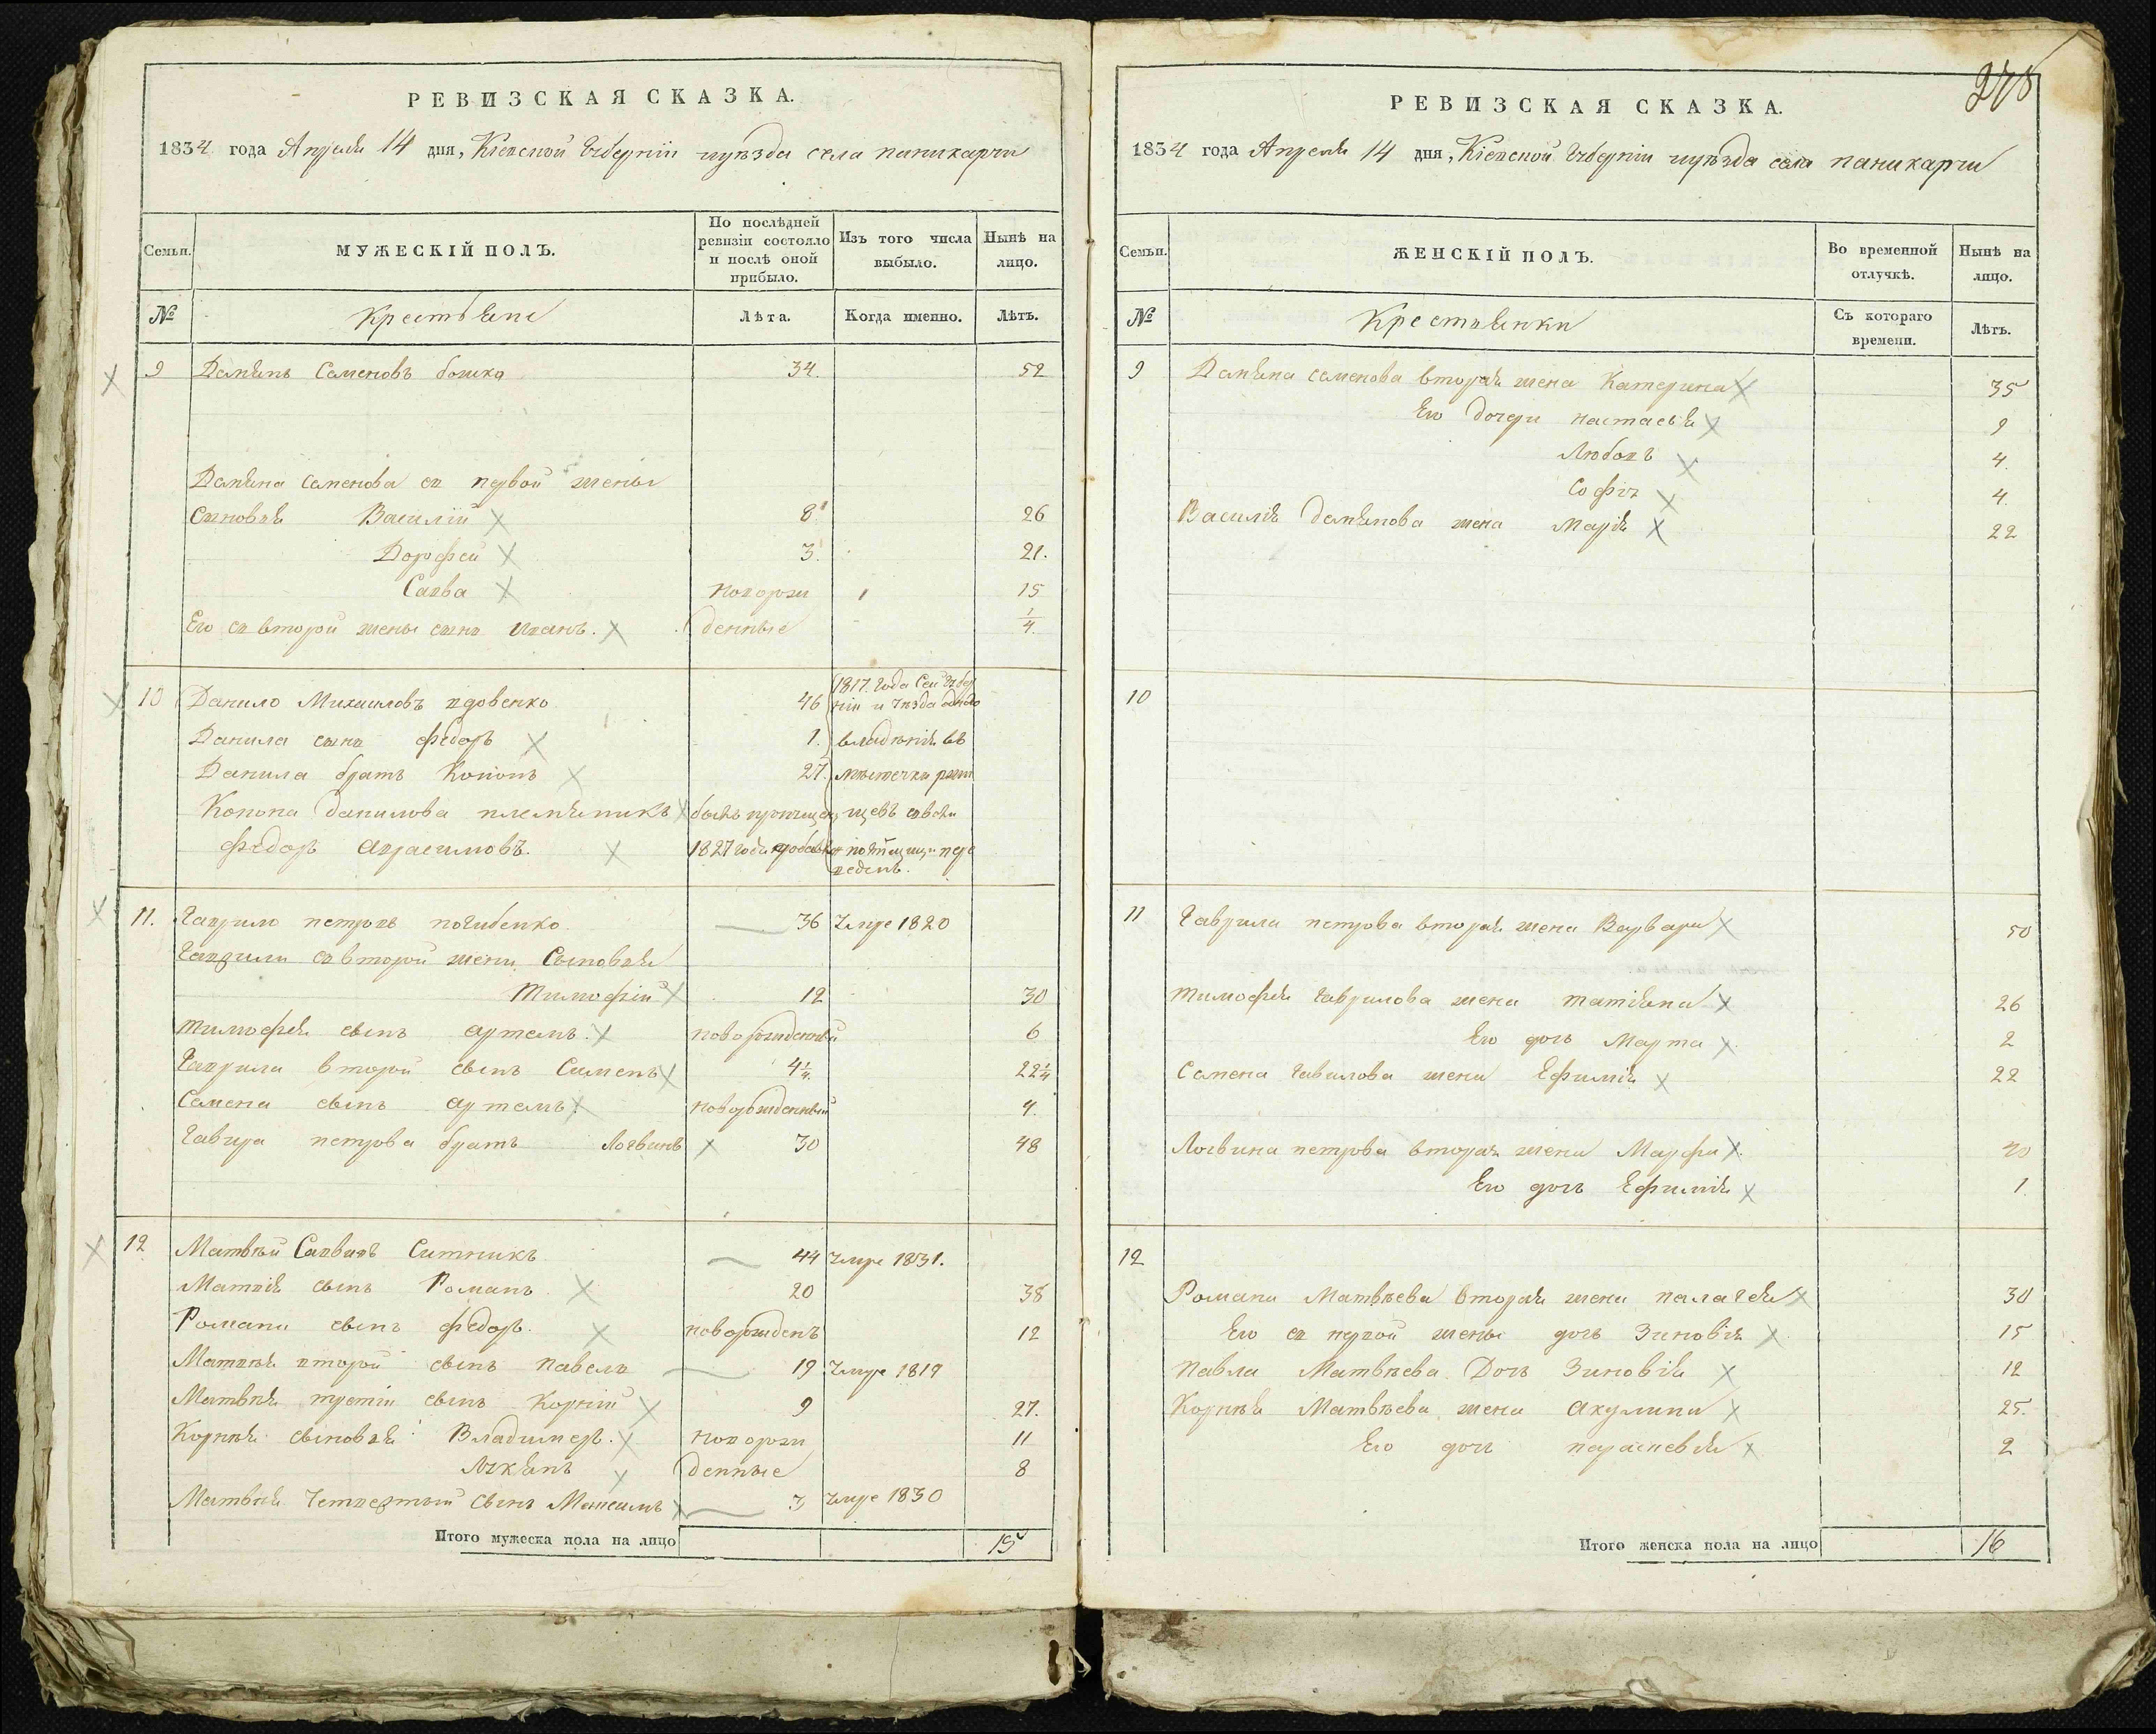 РЕВИЗСКАЯ СКАЗКА.
1834 года Апреля 14 дня, Кіевской Губерніи иуѣзда села паникарчи
Семьи.
МУЖЕСКІЙ ПОЛЪ.
По послѣдней ревизіи состояло и послѣ оной прибыло.
Изъ того числа выбыло.
Нынѣ на лицо.
№
Крестьяне
Лѣта.
Когда именно.
Лѣтъ.
9 Демянъ Семеновъ 34. 52
Демяна Семенова съ первой жены
Сыновья Василій 8 26
Дорофей 3. 21.
Савва новорож 15
Его съ второй жены сынъ Иванъ. денные 1/4.
10 Данило Михаиловъ вдовенко 46 1817. года Сей Губер
ніи и Уѣзда одного
Данила сынъ федоръ 1. владѣнія въ
Данила братъ Кононъ 27. мѣстечка
Конона данилова племянникъ былъ пропущен
федоръ 1827 года пере
веденъ.
11. Гаврило петровъ погибенко 36 Умре 1820
Гаврили съ второй жени Сыновья
Тимофій 12 30
Тимофея сынъ артемъ. новорожденный 6
Гаврили второй сынъ Сименъ 4 1/4. 22 1/4
Семена сынъ артемъ. новорожденный 4.
петрова братъ Логвинъ 30 48
12 Матвѣй Саввинъ Ситникъ 44 Умре 1831.
Матвія сынъ Романъ 20 38
Романа сынъ федоръ. новорожденъ 12
Матвія второй сынъ павелъ 19 Умре 1819
Матвія третій сынъ Корній 9 27.
Корнѣя сыновья Владимеръ. новорож 11
Лукянъ денные 8
Матвія Четвертый сынъ Максимъ 3 Умре 1830
Итого мужеска пола на лицо 15
278
РЕВИЗСКАЯ СКАЗКА.
1834 года Апреля 14 дня, Кіевской Губерніи иуѣзда села паникарчи
Семьи.
ЖЕНСКІЙ ПОЛЪ.
Во временной отлучкѣ.
Нынѣ на лицо.
№
Крестьянки
Съ котораго времени.
Лѣтъ.
9 Демяна семенова вторая жена Катерина 35
Его дочери настасія 9
Любовъ 4.
Софія 4.
Василія демянова жена Марія 22
10
11 Гаврила петрова вторая жена Варвара 50
Тимофея Гаврилова жена татіяна 26
Его дочь Марта 2
Семена Гавилова жена Ефимія 22
Логвина петрова вторая жена Марфа 40
Его дочь Ефимія 1.
12
Романа Матвѣева вторая жена палагея 30
Его съ первой жены дочь Зиновія 15
Павла Матвѣева Дочь Зиновія 12
Корнѣя Матвѣева жена акулина 25.
Его дочь парасмевія 2
Итого женска пола на лицо 16